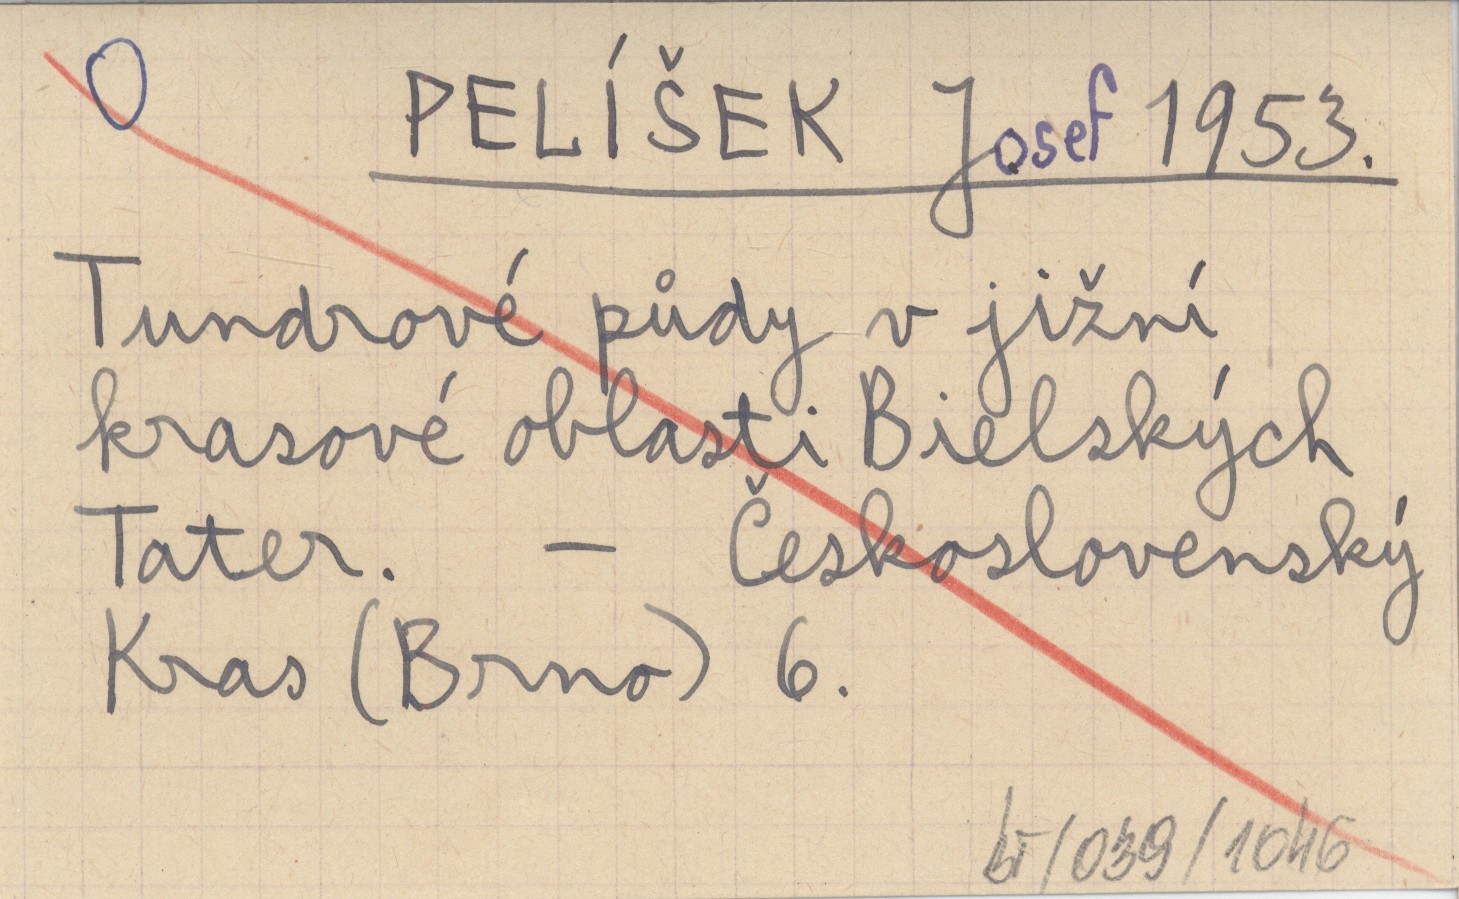 O
PELÍŠEK Josef 1953.
Tundrové půdy v jižní
krasové oblasti Bielských
Tater. – Československý
Kras (Brno) 6.
/039/1046